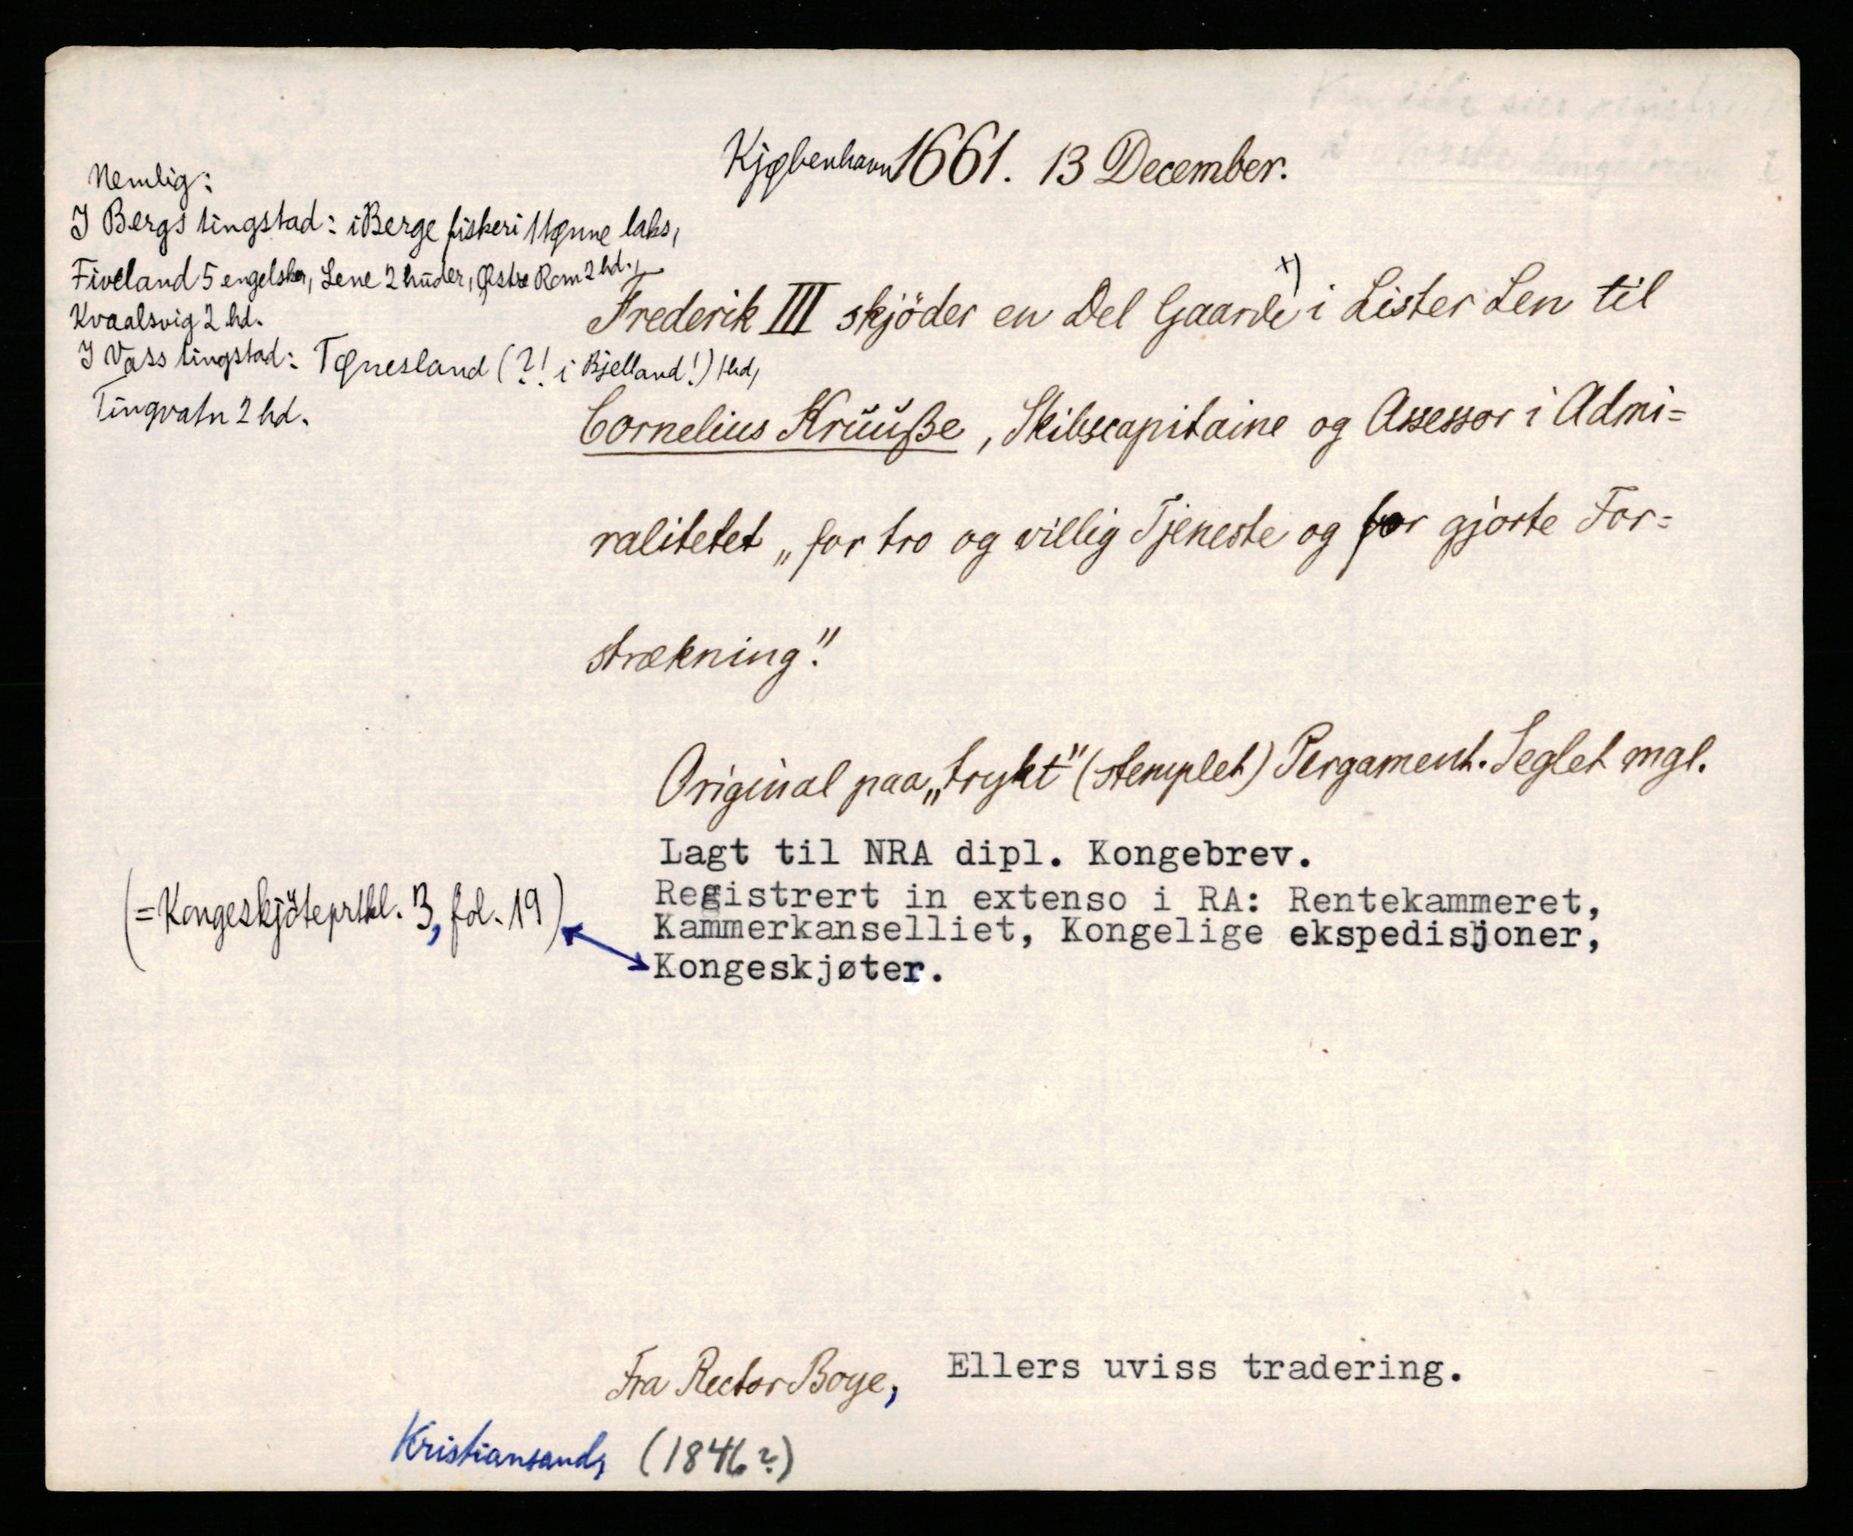 Kjøbenhavn 1661. 13 December.
Nemlig:
I Bergs tingstad: i Berge fiskeri 1 tønne laks,
Fiveland 5 engelsker, Lene 2 huder, Østre Rom 2 hd.,
Kvaalsvig 2 hd.
I Vass tingstad: Tønesland (?! i Bjelland!) 1 hd,
Tingvatn 2 hd.
Frederik III skjöder en Del Gaarde x) i Lister Len til
Cornelius Krüüße, Skibscapitaine og Assessor i Admi=
ralitetet „for tro og villig Tjeneste og for gjorte For=
strækning."
Original paa „trykt" (stemplet) Pergament. Seglet mgl.
Lagt til NRA dipl. Kongebrev.
Registrert in extenso i RA: Rentekammeret,
Kammerkanselliet, Kongelige ekspedisjoner,
Kongeskjøter.
(=Kongeskjöteprtkl. 3, fol. 19)
Fra Rector Boye, Ellers uviss tradering.
Kristiansand, (1846?)